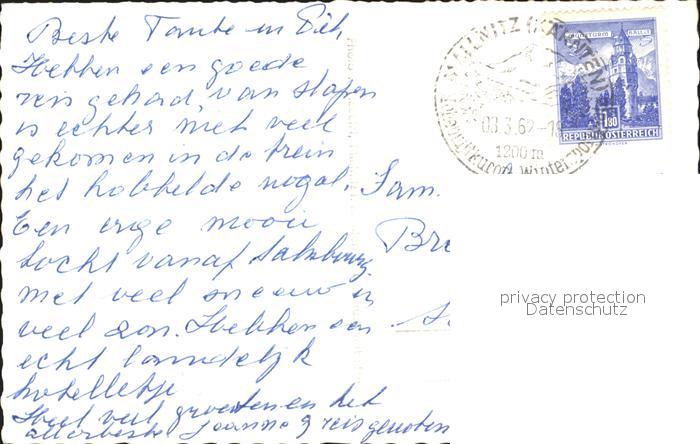 Beste Tante en
Hebben een goede
reis gehad, van slapen
is echter niet veel
gekomen in de trein
het hobbelde nogal.
Een erge mooie
tocht vanaf Salzburg
met veel sneeuw en
veel zon. Hebben een
echt landelijk
hotelletje
Heel veel groeten en het
allerbeste Joanne reisgenoten
Fam.
Br
MALLNITZ (KÄRNTEN)
03.3.62-18
1200 m
Wintersport
MÜNZTURM HALL i. T.
1.80
REPUBLIK ÖSTERREICH
privacy protection
Datenschutz